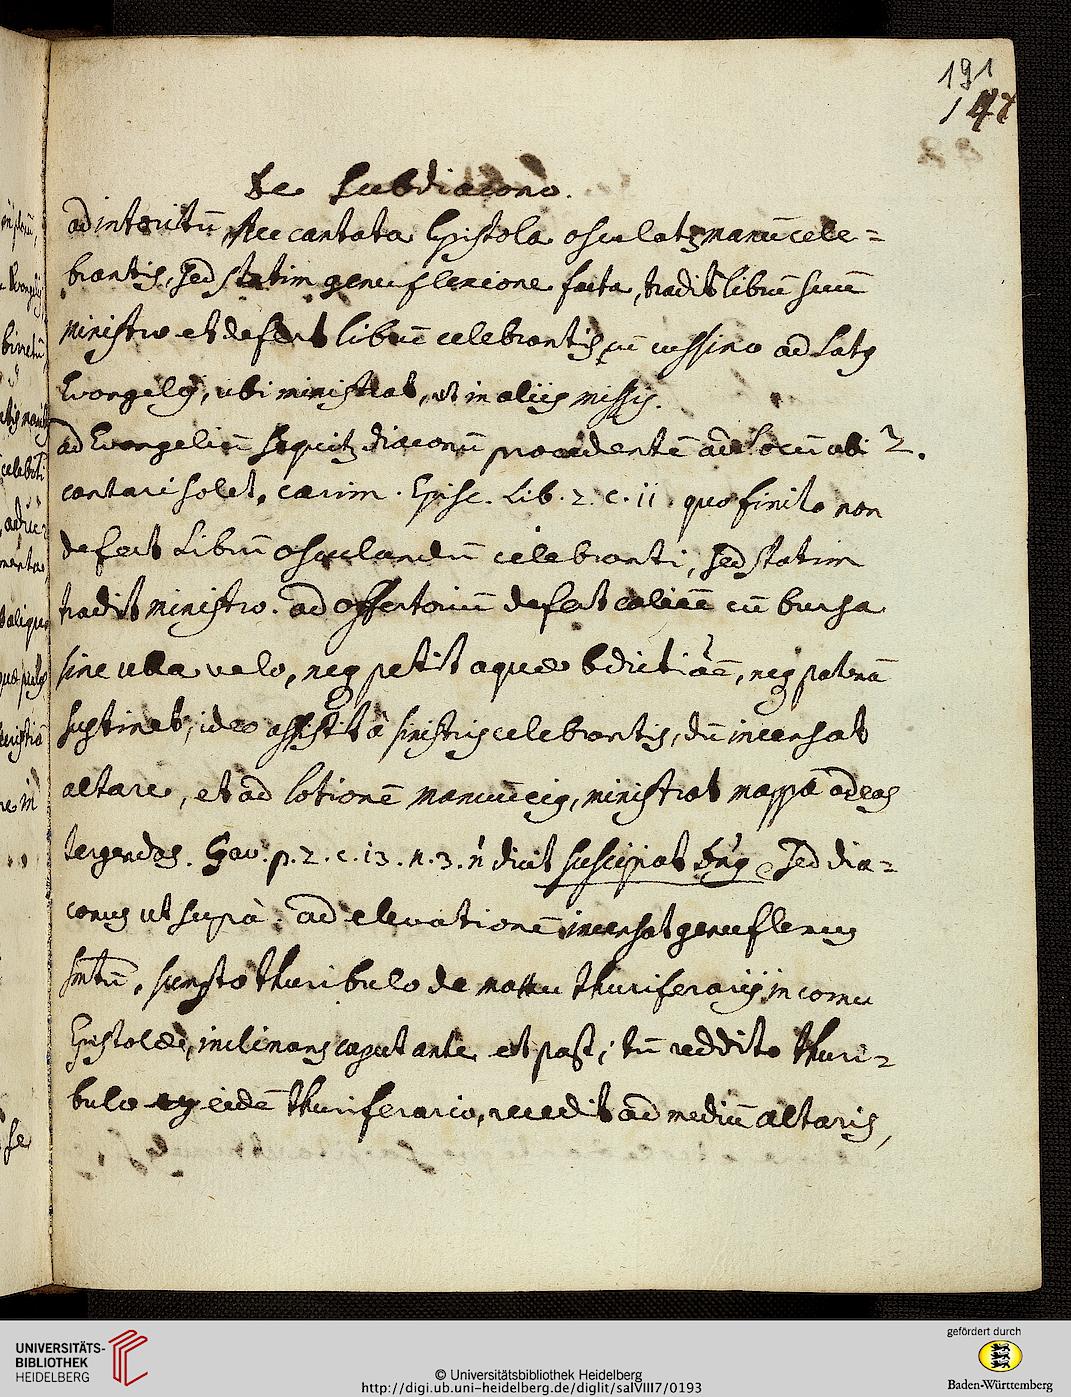 191
147
De Subdiacono.
ad introitū, Nec cantata Epistola osculatꝫ manū cele=
brantis, sed statim genuflexione facta, tradit librū suū
ministro et defert librū celebrantis cū cussino ad latꝰ
Evangelij, ubi ministrat, ut in aliis missis.
ad Evangeliū sequitꝫ diaconū procedentē ad locū ubi 2.
cantari solet, cærim. Episc. Lib. 2. c. ii. quo finito non
defert Librū osculandū celebranti, sed statim
tradit ministro. ad offertoriū defert calicē cū bursa
sine ullo velo, neqꝫ petit aquæ bdictiōē, neqꝫ patenā
sustinet, ideo assistit à sinistris celebrantis, dū incensat
altare, et ad lotionē manuū eiꝰ, ministrat mappā ad eas
tergendas. Gav. p. 2. c. i3. n. 3. ñ dicit suscipiat Dn̄s sed dia=
conus ut supra. ad elevationē incensat genuflexus
smtū, sumpto thuribulo de manu thuriferarij in cornu
Epistolæ, inclinans caput ante et post; tū reddito thuri=
bulo eidē thuriferario, recedit ad mediū altaris,
UNIVERSITÄTS-
BIBLIOTHEK
HEIDELBERG
© Universitätsbibliothek Heidelberg
http://digi.ub.uni-heidelberg.de/diglit/salVIII7/0193
gefördert durch
Baden-Württemberg